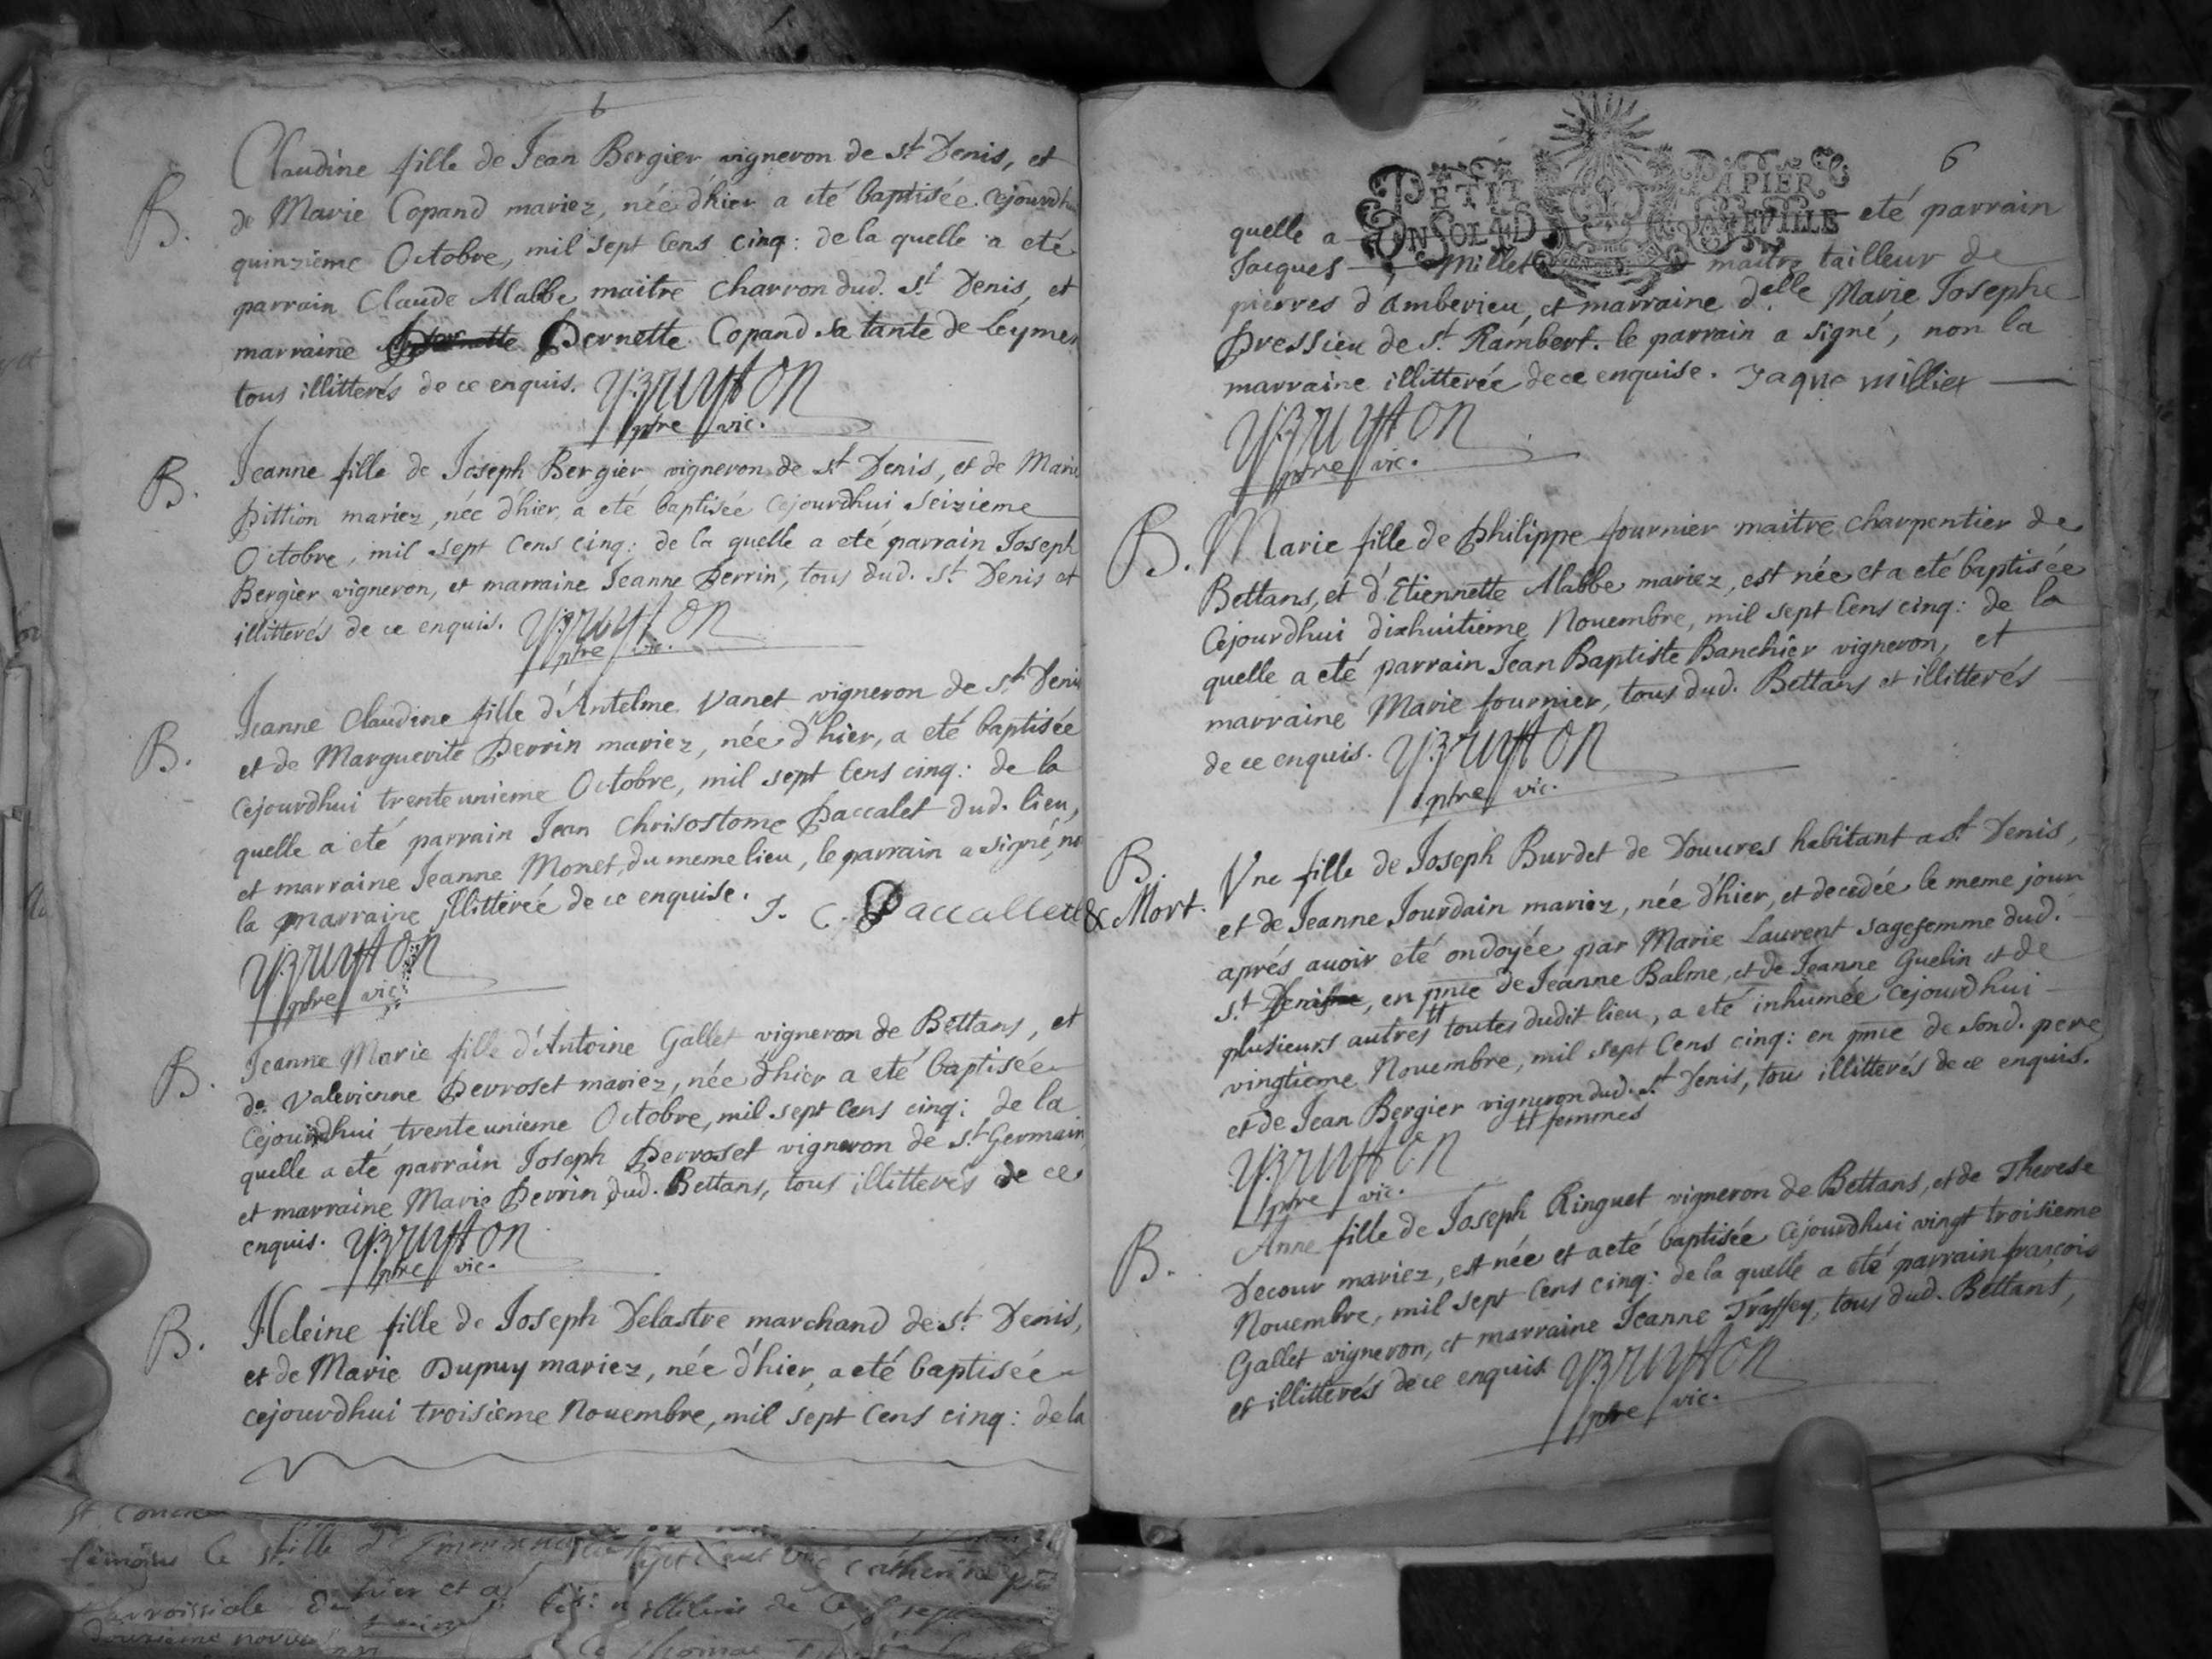 6
B.
Claudine fille de Jean Bergier vigneron de St Denis, et
de Marie Copand mariez, née d'hier a eté baptisée cejourdhui
quinzième Octobre, mil sept cens cinq: de la quelle a eté
parrain Claude Malbbe maitre charron dud. St Denis, et
marraine Pernette Copand sa tante de Leymen
tous illitterés de ce enquis.
ptre vic.
B.
Jeanne fille de Joseph Bergier vigneron de St Denis, et de Marie
Pittion mariez, née d'hier, a eté baptisée cejourdhui seizieme
Octobre, mil sept cens cinq: de la quelle a eté parrain Joseph
Bergier vigneron, et marraine Jeanne Perrin, tous dud. St Denis et
illitterés de ce enquis.
ptre vic.
B.
Jeanne Claudine fille d'Antelme Vanet vigneron de St Denis
et de Marguerite Perrin mariez, née d'hier, a eté baptisée
cejourdhui trente unieme Octobre, mil sept cens cinq: de la
quelle a eté parrain Jean Chrisostome Paccalet dud. lieu,
et marraine Jeanne Monet, du meme lieu, le parrain a signé, no
la marraine illitterée de ce enquise. J. C. Paccallet
ptre vic.
B.
Jeanne Marie fille d'Antoine Gallet vigneron de Bettans, et
de Valerienne Perroset mariez, née d'hier a eté baptisée
cejourdhui trente unieme Octobre, mil sept cens cinq: de la
quelle a eté parrain Joseph Perroset vigneron de St Germain
et marraine Marie Perrin dud. Bettans, tous illitterés de ce
enquis.
ptre vic.
B.
Heleine fille de Joseph Delastre marchand de St Denis,
et de Marie Dupuy mariez, née d'hier, a eté baptisée
cejourdhui troisieme Nouembre, mil sept cens cinq: de la
6
PETIT PAPIER
UN SOL LAD
quelle a eté parrain
Jacques Millet maitre tailleur de
pierres d'Amberieu, et marraine delle Marie Josephe
Pressieu de St Rambert. le parrain a signé, non la
marraine illitterée de ce enquise. Jaque millier
ptre vic.
B.
Marie fille de Philippe fournier maitre charpentier de
Bettans, et d'Etiennette Malbbe mariez, est née et a eté baptisée
cejourdhui dixhuitieme Nouembre, mil sept cens cinq: de la
quelle a eté parrain Jean Baptiste Banchier vigneron, et
marraine Marie fournier, tous dud. Bettans et illitterés
de ce enquis.
ptre vic.
B.
& Mort.
Vne fille de Joseph Burdet de Douures habitant a St Denis,
et de Jeanne Jourdain mariez, née d'hier, et decedée le meme jour
aprés auoir eté ondoyée par Marie Laurent sagefemme dud.
St Denis, en pnce de Jeanne Balme, et de Jeanne Guelin et de
plusieurs autres # toutes dudit lieu, a eté inhumée cejourdhui
vingtieme Nouembre, mil sept cens cinq: en pnce de sond. pere
et de Jean Bergier vigneron dud. St Denis, tous illitterés de ce enquis.
# femmes
ptre vic.
B.
Anne fille de Joseph Ringuet vigneron de Bettans, et de Therese
Decour mariez, est née et a eté baptisée cejourdhui vingt troisieme
Nouembre, mil sept cens cinq: de la quelle a eté parrain françois
Gallet vigneron, et marraine Jeanne Traffey, tous dud. Bettans,
et illitterés de ce enquis
ptre vic.